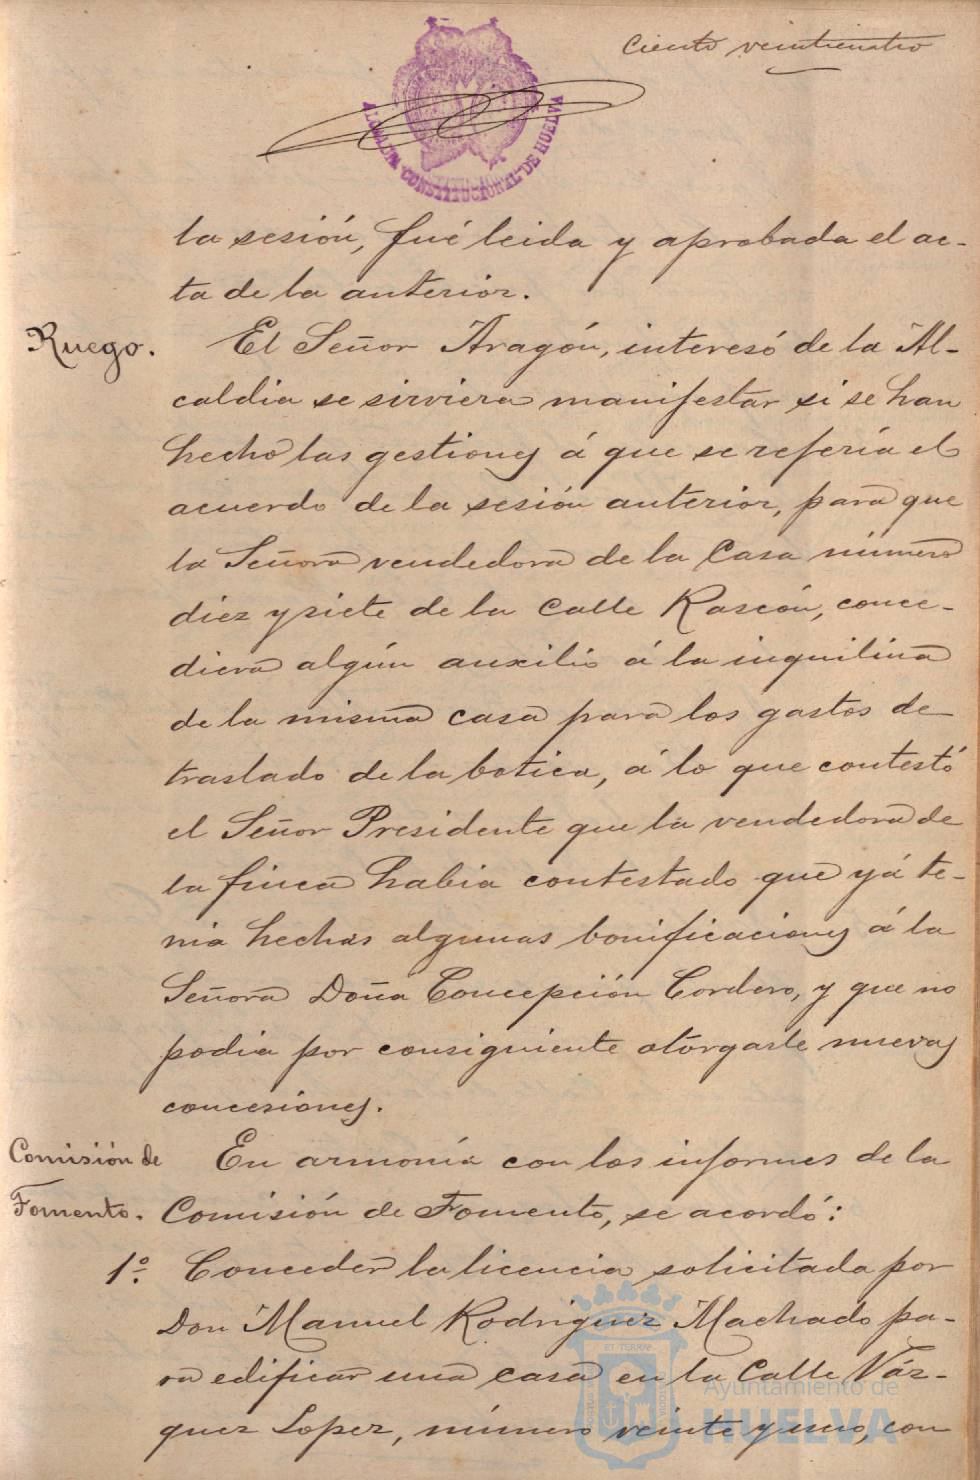 Ciento veinticuatro
ALCALDIA CONSTITUCIONAL DE HUELVA
la sesión, fué leida y aprobada el ac-
ta de la anterior.
Ruego. El Señor Aragón, interesó de la Al-
caldia se sirviera manifestar si se han
hecho las gestiones á que se refería el
acuerdo de la sesión anterior, para que
la Señora vendedora de la Casa número
diez y siete de la Calle Rascón, conce-
diera algún auxilio á la inquilina
de la misma casa para los gastos de
traslado de la botica, á lo que contestó
el Señor Presidente que la vendedora de
la finca habia contestado que yá te-
nia hechas algunas bonificaciones á la
Señora Doña Concepción Cordero, y que no
podia por consiguiente otorgarle nuevas
concesiones.
Comisión de Fomento. En armonía con los informes de la
Comisión de Fomento, se acordó:
1º. Conceder la licencia solicitada por
Don Manuel Rodriguez Machado pa-
ra edificar una casa en la Calle Váz-
quez Lopez, número veinte y uno, con
Ayuntamiento de
HUELVA